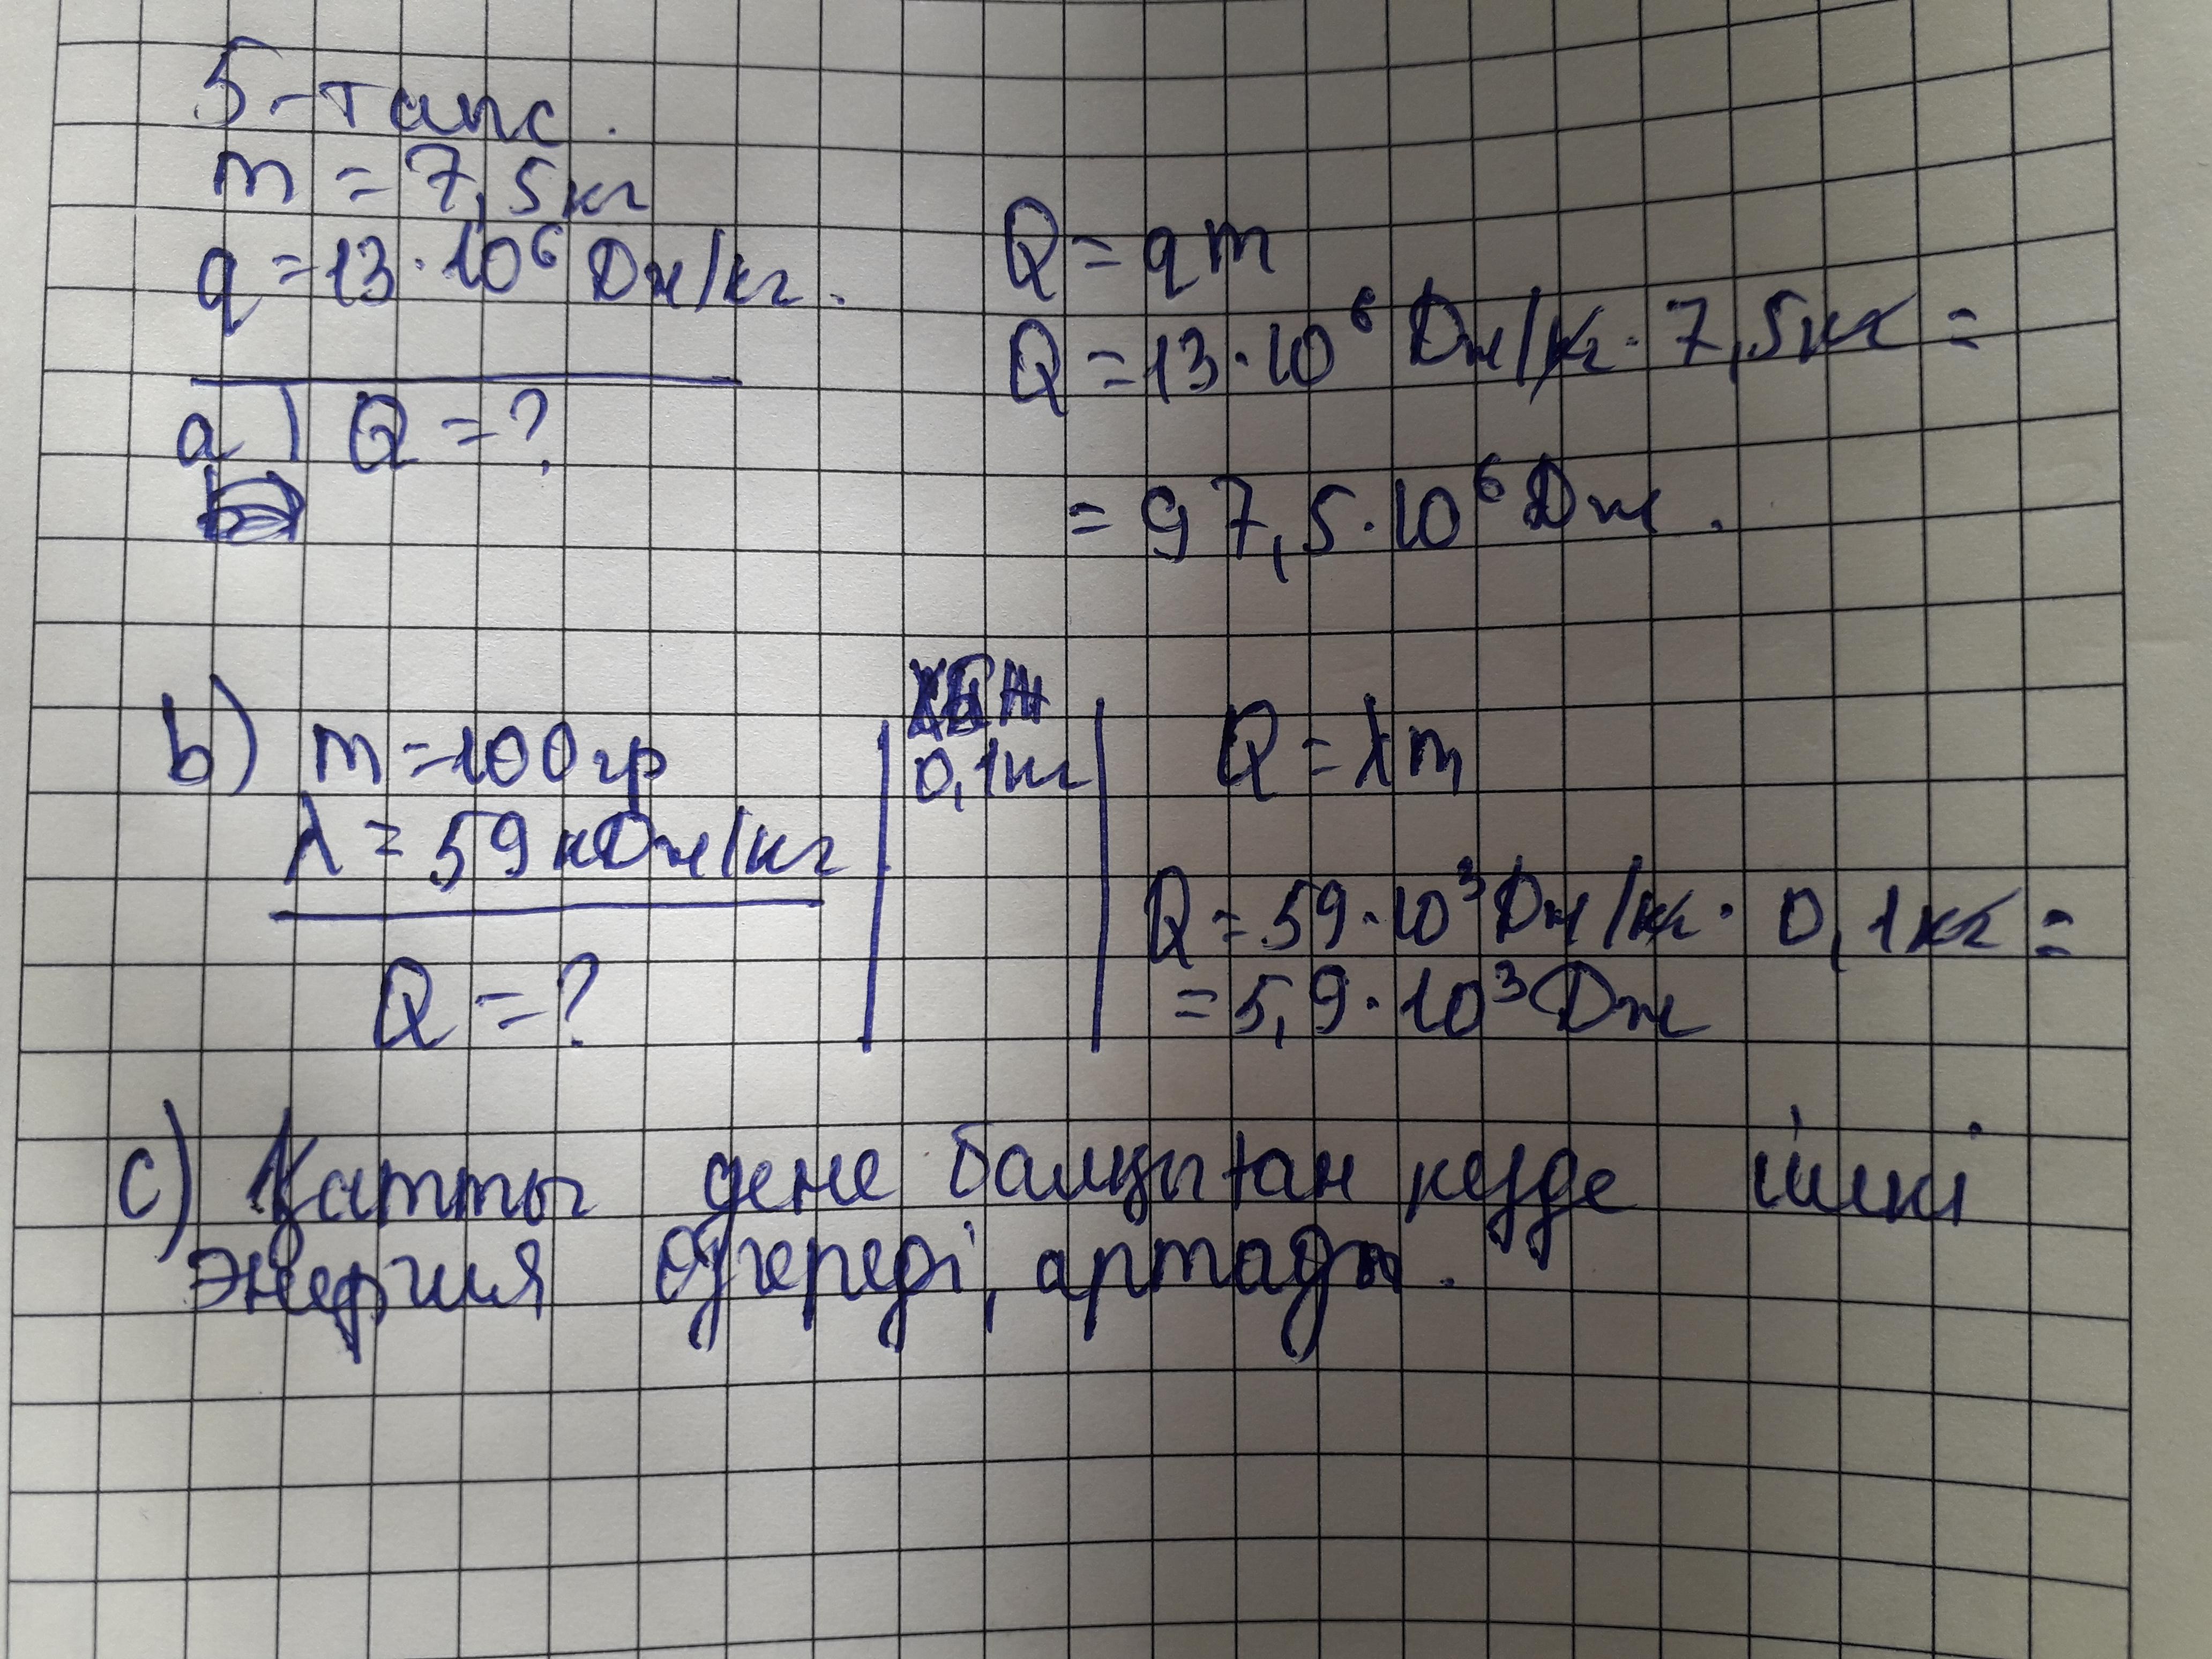 5-тапс.
m = 7,5кг
q = 13·10⁶ Дж/кг.
a) Q = ?
Q = qm
Q = 13·10⁶ Дж/кг · 7,5кг =
= 97,5·10⁶ Дж.
b) m = 100гр
λ = 59 кДж/кг
Q = ?
ХБЖ
0,1кг
Q = λm
Q = 59·10³ Дж/кг · 0,1кг =
= 5,9·10³ Дж
c) Қатты дене балқытан кезде ішкі
энергия өзгереді, артады.